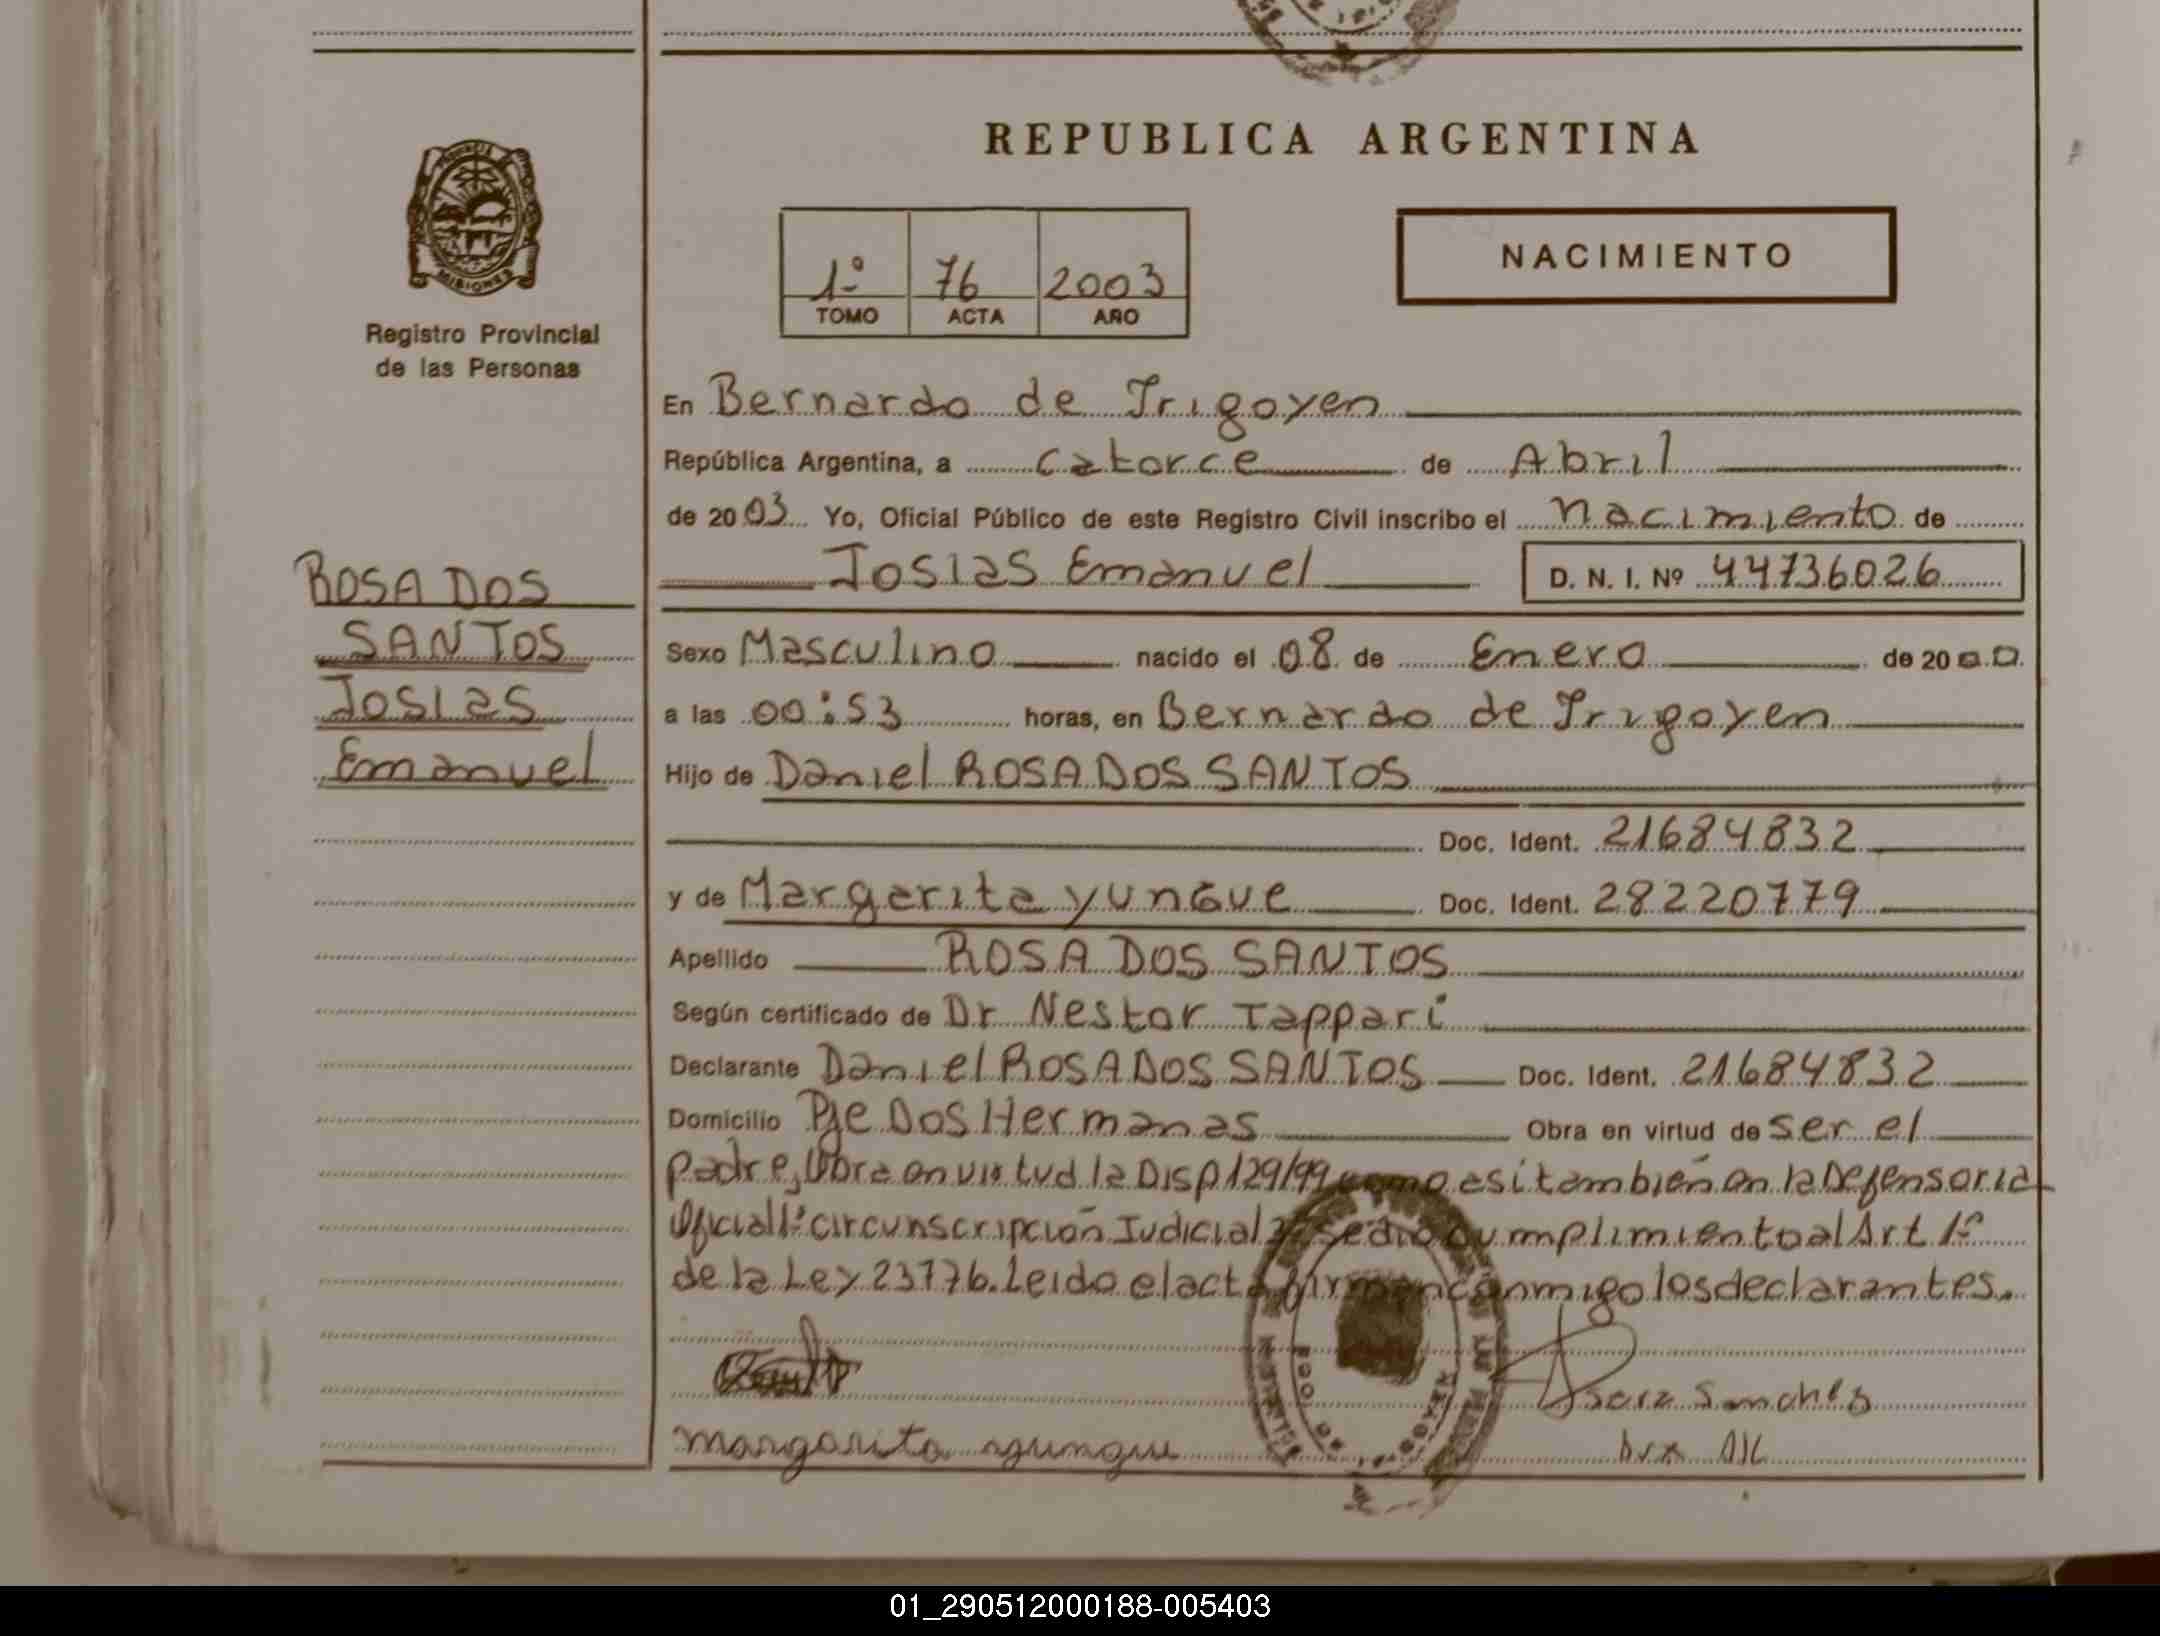 REPUBLICA ARGENTINA
MISIONES
Registro Provincial
de las Personas
1º 76 2003
TOMO ACTA AÑO
NACIMIENTO
En Bernardo de Irigoyen
República Argentina, a catorce de Abril
de 2003 Yo, Oficial Público de este Registro Civil inscribo el nacimiento de
Josias Emanuel D. N. I. Nº 44736026
ROSA DOS
SANTOS
Josias
Emanuel
Sexo Masculino nacido el 08 de Enero de 2000
a las 00:53 horas, en Bernardo de Irigoyen
Hijo de Daniel ROSA DOS SANTOS
Doc. Ident. 21684832
y de Margarita yunGue Doc. Ident. 28220779
Apellido ROSA DOS SANTOS
Según certificado de Dr Nestor Tappari
Declarante Daniel ROSA DOS SANTOS Doc. Ident. 21684832
Domicilio Pje Dos Hermanas Obra en virtud de ser el
padre, Obra en virtud la Disp 129/99 como asi también en la Defensoria
Oficial 1º circunscripción Judicial se dió cumplimiento al Art 1º
de la Ley 23776. Leido el acta firman conmigo los declarantes.
margarita yungue
01_290512000188-005403